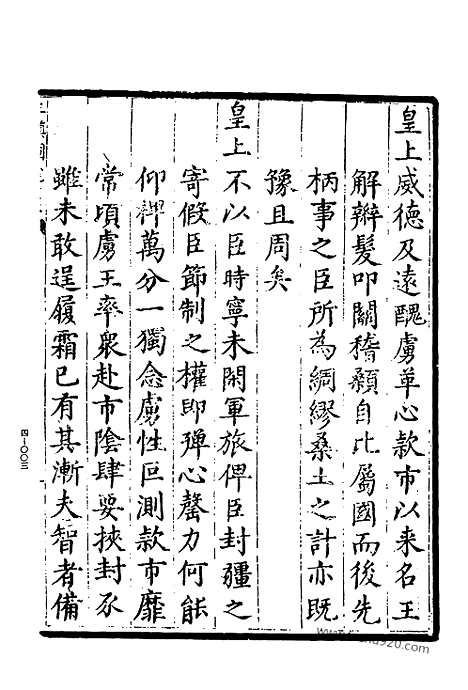 皇上威德及遠醜虜革心款市以来名王
解辮髮叩關稽顙自比屬國而後先
柄事之臣所為綢繆桑土之計亦既
豫且周矣
皇上不以臣時寧未閑軍旅俾臣封疆之
寄假臣節制之權即殫心罄力何能
仰裨萬分一獨念虜性叵測款市靡
常頃虜王率衆赴市陰肆要挾封豕
雖未敢逞履霜已有其漸夫智者備
四-〇〇三